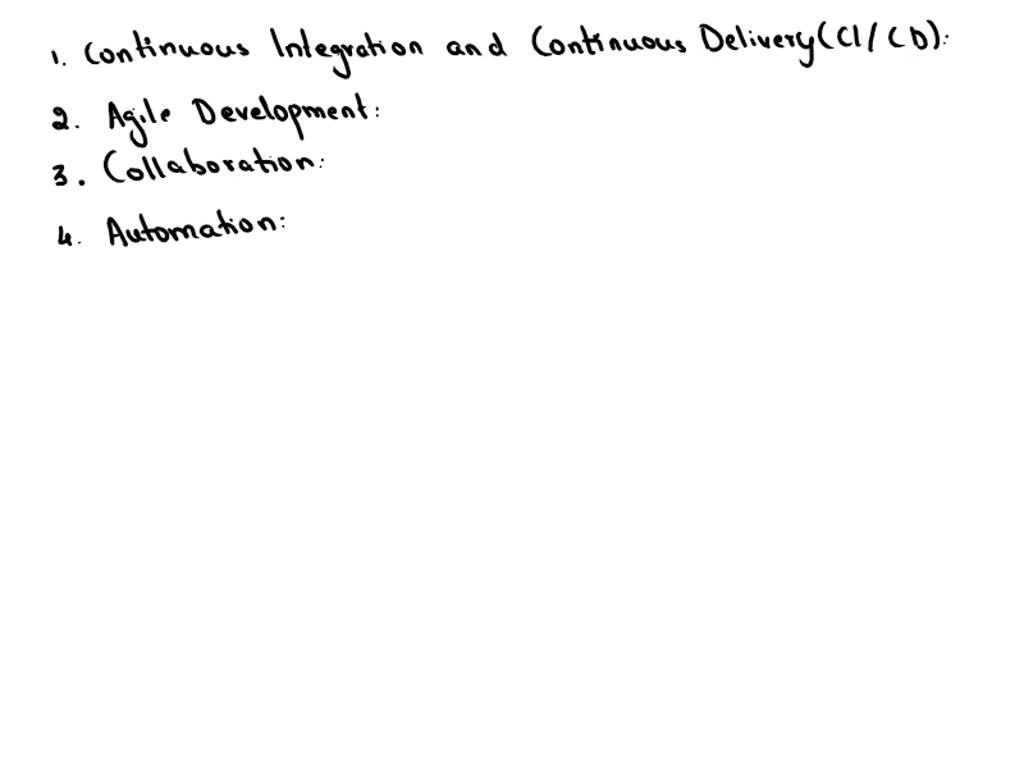 1. Continuous Integration and Continuous Delivery (CI/CD):
2. Agile Development:
3. Collaboration:
4. Automation: